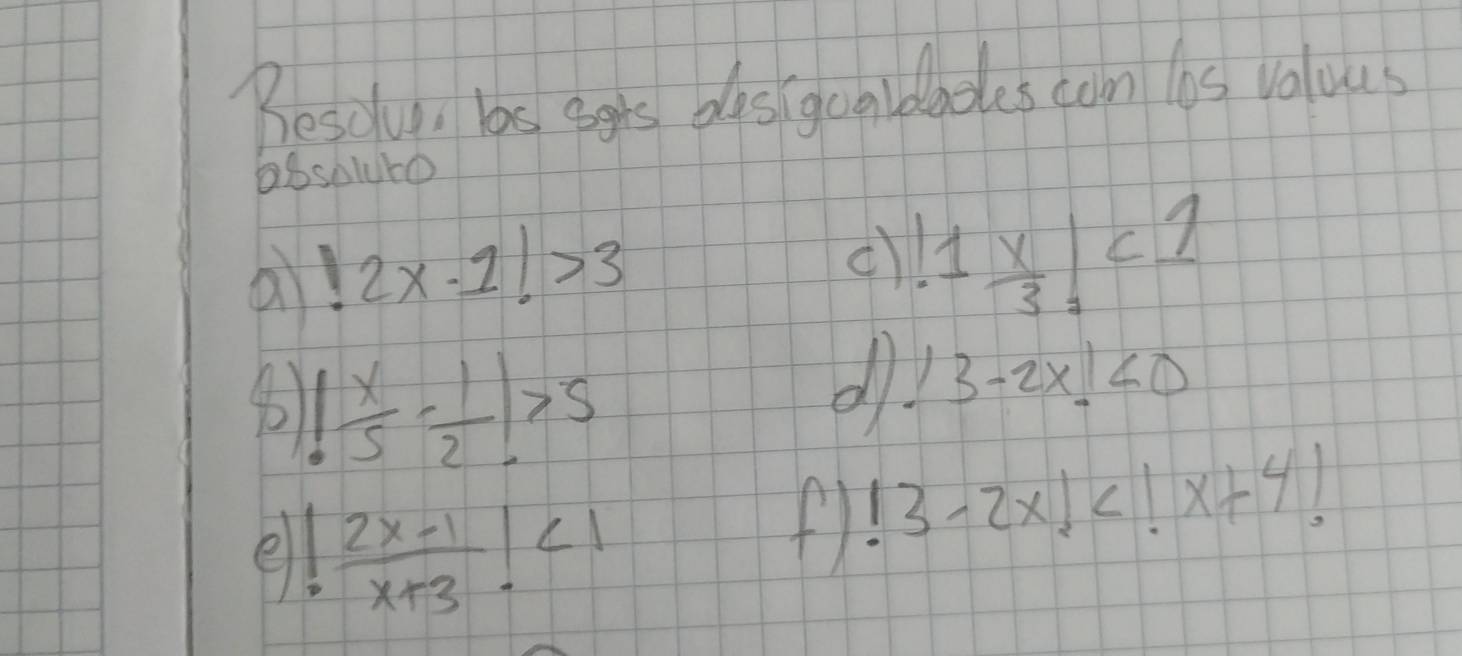 Resolver los sgts desigualdades con los valores
absoluto
a) !2x-1!>3 c) !1 x/3!<1
b) !x/5 - 1/2!>5 d) !3-2x!<0
e) !2x-1/x+3!<1 f) !3-2x!<!x+4!